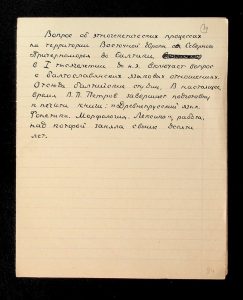 Вопрос об этногенетских процессах
на территории Восточной Европы от Северного
Причерноморья до Балтики,
в I тысячелетии до н.э. включает вопрос
о балтославянских языковых отношениях.
Отсюда балтийские студии. В настоящее
время В.П. Петров завершает подготовку
к печати книги: "Древнепрусский язык.
Фонетика. Морфология. Лексика", работа,
над которой заняла свыше десяти
лет.